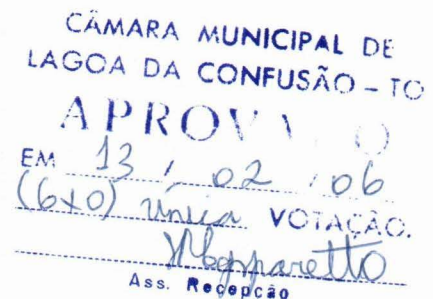 CÂMARA MUNICIPAL DE
LAGOA DA CONFUSÃO - TO
APROVADO
EM 13 / 02 / 06
(6x0) única VOTAÇÃO.
Ass. Recepção